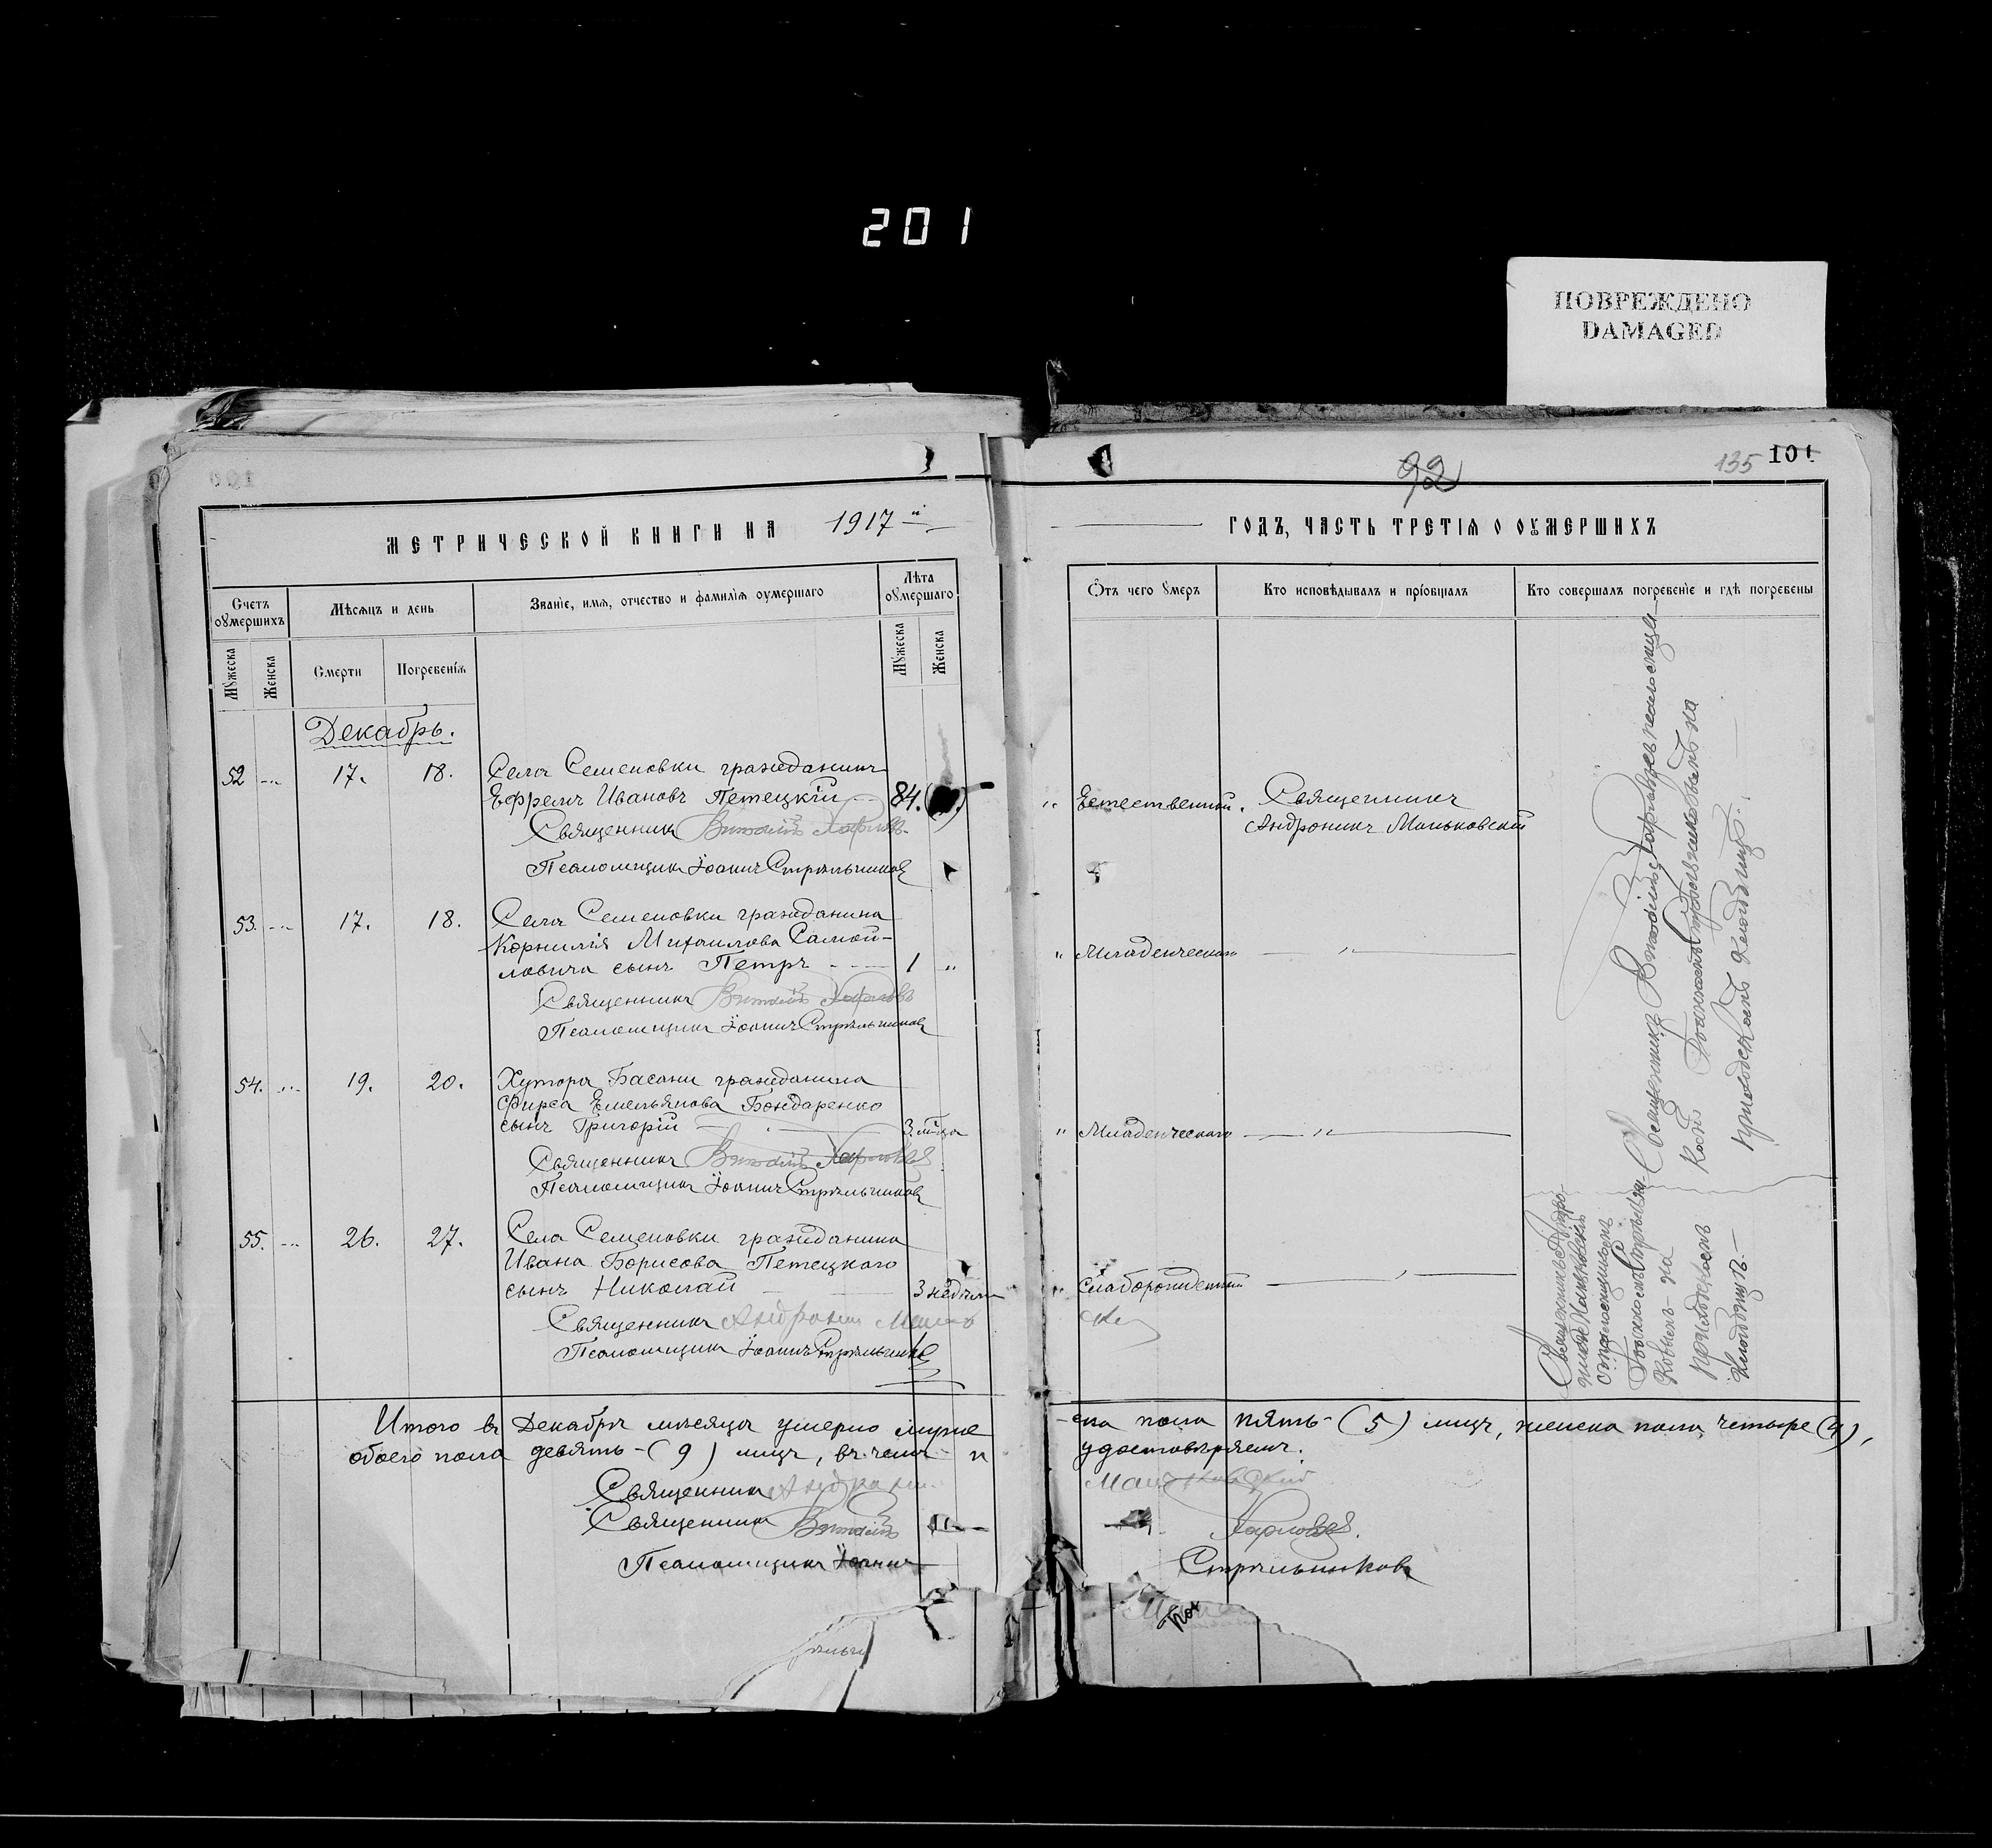 201
ПОВРЕЖДЕНО
DAMAGED
92
135 101
МЕТРИЧЕСКОЙ КНИГИ НА 1917 й
ГОДЪ, ЧАСТЬ ТРЕТІѦ О ОУМЕРШИХЪ
Счетъ оумершихъ
Мѣсяцъ и день
Званіе, имя, отчество и фамилія оумершаго
Лѣта оумершаго
Отъ чего умеръ
Кто исповѣдывалъ и пріобщалъ
Кто совершалъ погребеніе и гдѣ погребены
Мужеска
Женска
Смерти
Погребенія
Мужеска
Женска
Декабрь.
52 17. 18. Села Семеновки гражданинъ
Ефремъ Ивановъ Петецкій 84. " Естественной. Священникъ
Андроникъ Маньковскій
Священникъ Виталій Карповъ.
Псаломщикъ Іоаннъ Стрѣльниковъ
53. 17. 18. Села Семеновки гражданина
Корнилія Михаилова Самой-
ловича сынъ Петръ 1 " " Младенческой "
Священникъ Виталій Карповъ
Псаломщикъ Іоаннъ Стрѣльниковъ
54. 19. 20. Хутора Басани гражданина
Фирса Емельянова Бондаренко
сынъ Григорій 3 м-ца " Младенческой "
Священникъ Виталій Карповъ
Псаломщикъ Іоаннъ Стрѣльниковъ
55. 26. 27. Села Семеновки гражданина
Ивана Борисова Петецкаго
сынъ Николай 3 недѣли " Слаборожденный
Священникъ Андроникъ
Псаломщикъ Іоаннъ Стрѣльниковъ
Священникъ Виталій Карповъ съ псаломщи-
комъ Іоанномъ Стрѣльниковымъ на
приходскомъ кладбищѣ.
Священникъ Андро-
никъ Маньковскій
съ псаломщикомъ
Іоанномъ Стрѣльни-
ковымъ на
приходскомъ
кладбищѣ.
Итого въ Декабрѣ мѣсяцѣ умерло муже-ска пола пять - (5) лицъ, женска пола четыре (4),
обоего пола девять - (9) лицъ, въ чемъ и удостовѣряемъ.
Священникъ Андроникъ Маньковскій
Священникъ Виталій Карповъ.
Псаломщикъ Іоаннъ Стрѣльниковъ